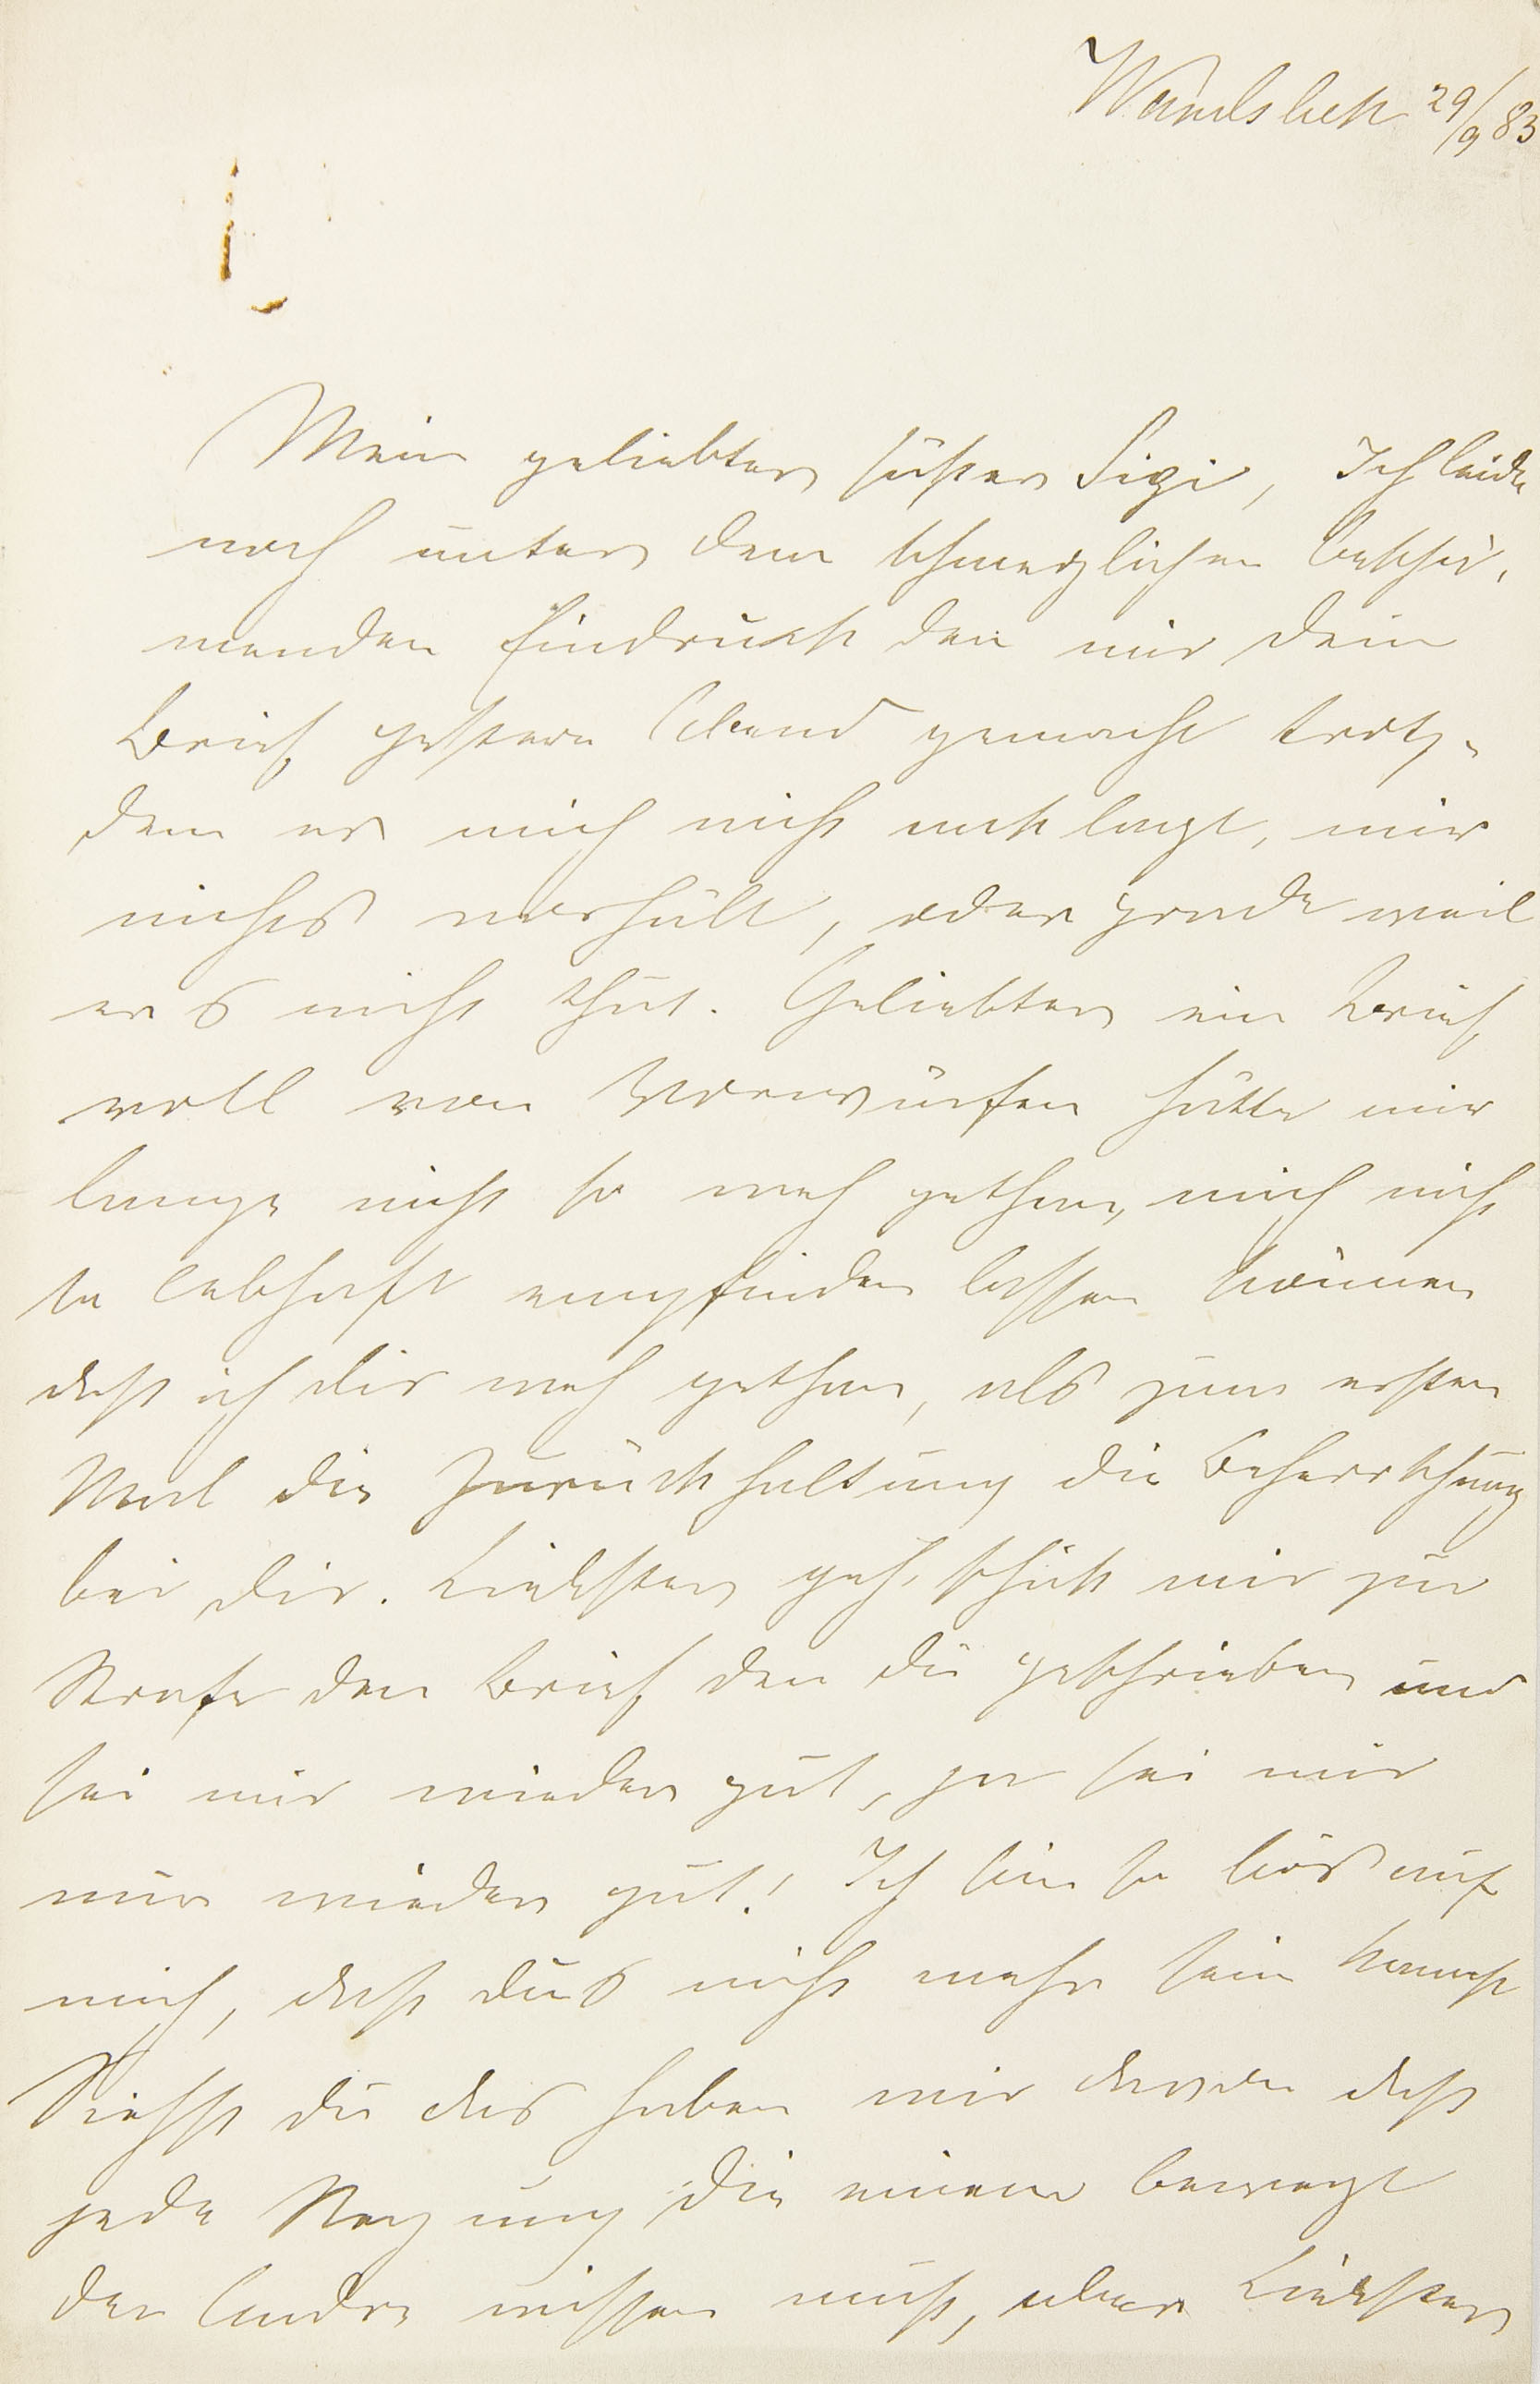 Wandsbek 29/9 83
Mein geliebter süßer Sigi, Ich leide
noch unter dem schmerzlichen beschä-
menden Eindruck den mir dein
Brief gestern Abend gemacht trotz-
dem er mich nicht anklagt, mir
nichts vorhält, oder grade weil
er es nicht thut. Geliebter ein Brief
voll von Vorwürfen hätte mir
lange nicht so weh gethan, mich nicht
so lebhaft empfinden lassen können
daß ich dir weh gethan, als zum ersten
Mal die Zurückhaltung die Beherrschung
bei dir. Liebster geh, schick mir zur
Strafe den Brief den du geschrieben und
sei mir wieder gut, ja sei mir
nur wieder gut! Ich bin so bös auf
mich, daß dus nicht mehr sein kannst
Siehst du das haben wir davon daß
jede Regung die einen bewegt
der Andre wissen muß, aber Liebster